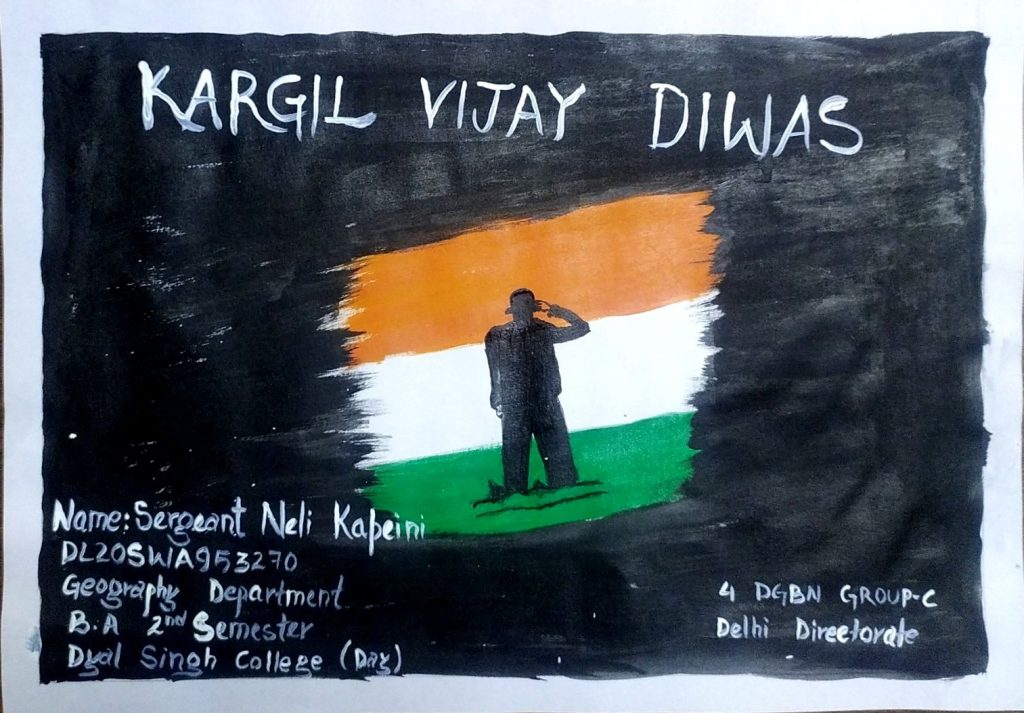 KARGIL VIJAY DIWAS
Name: Sergeant Neli Kapeini
DL20SWA953270
Geography Department
B.A 2nd Semester
Dyal Singh College (Day)
4 DGBN GROUP-C
Delhi Directorate